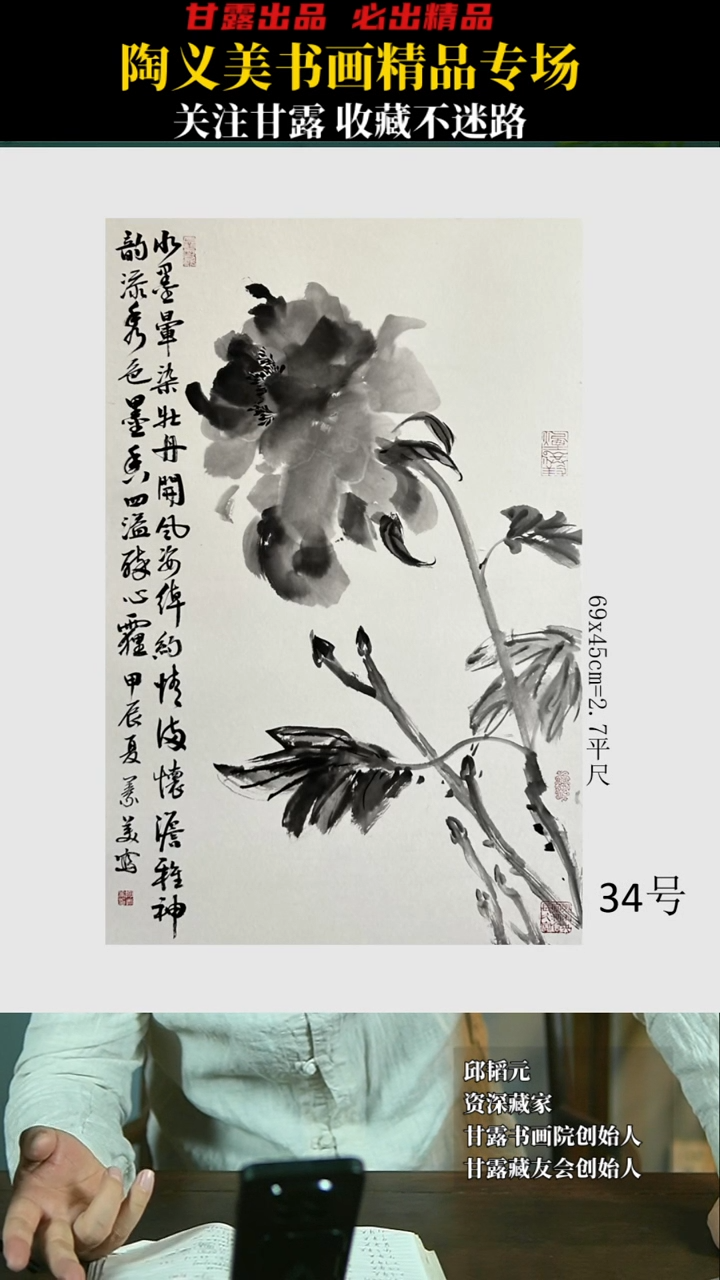 甘露出品 必出精品
陶义美书画精品专场
关注甘露 收藏不迷路
水墨暈染牡丹開風姿綽約情滿懷澹雅神
韵流秀色墨香四溢醉心靈 甲辰夏 義美寫
69x45cm=2.7平尺
34号
邱韬元
资深藏家
甘露书画院创始人
甘露藏友会创始人